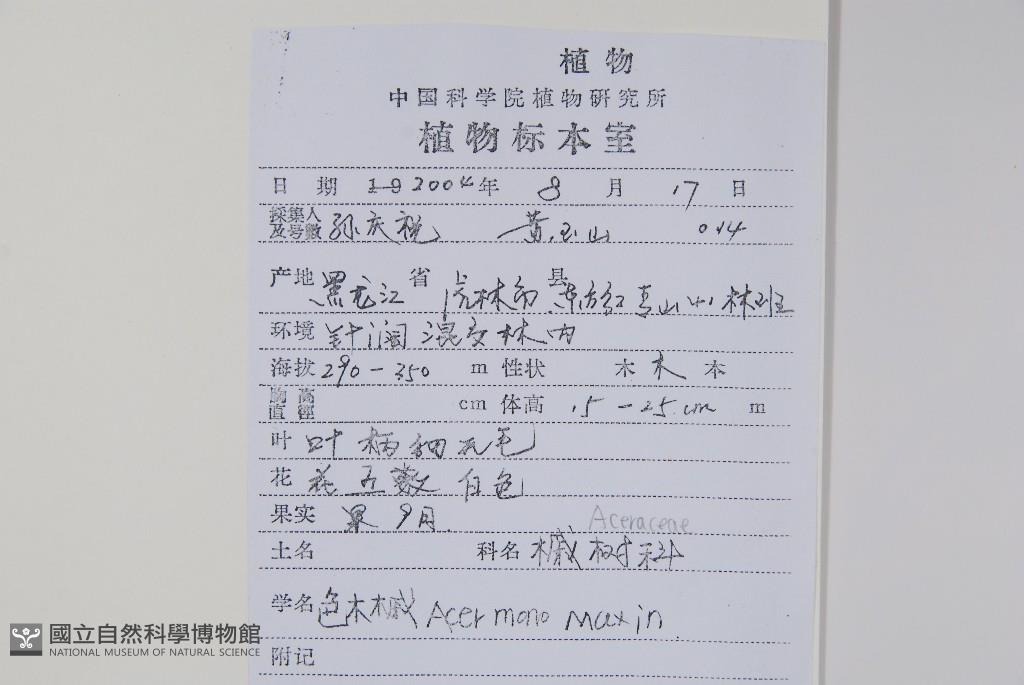 植物
中国科学院植物研究所
植物标本室
日 期 19 2004年 8 月 17 日
採集人及号数 孙庆 黄玉山 014
产地 黑龙江 省 虎林市 县 东方红 青山 林班
环境 针阔混交林内
海拔 290-350 m 性状 木 木 本
胸高直徑 cm 体高 15-25 cm m
叶 叶柄细无毛
花 花五数 白色
果实 果 9月
Aceraceae
土名 科名 槭树科
学名 色木槭 Acer mono Maxin
附记
國立自然科學博物館
NATIONAL MUSEUM OF NATURAL SCIENCE